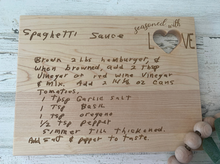 seasoned with
LOVE
Spaghetti Sauce
Brown 2 lbs hamburger, &
when browned, add 2 Tbsp
Vinegar or red wine Vinegar
& mix. Add 2 14½ oz cans
Tomatoes.
1 Tbsp Garlic Salt
1 Tsp Basil
1 Tsp oregano
½ Tsp pepper
Simmer Till Thickened.
Add Salt & pepper to Taste.